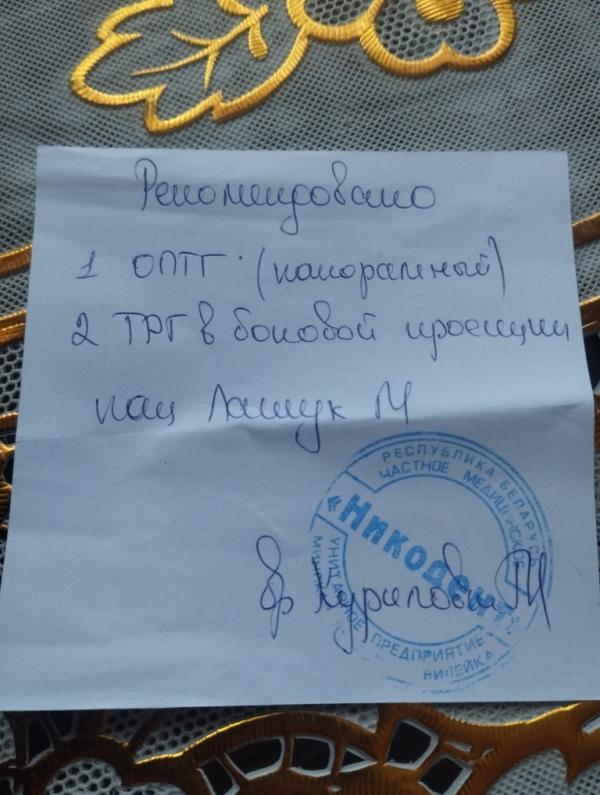 Рекомендовано
1 ОПТГ (панорамный)
2 ТРГ в боковой проекции
пац Лашук М
РЕСПУБЛИКА БЕЛАРУСЬ
ЧАСТНОЕ МЕДИЦИНСКОЕ
«Никодент»
УНИТАРНОЕ ПРЕДПРИЯТИЕ
ВИЛЕЙКА
Вр Курилович М